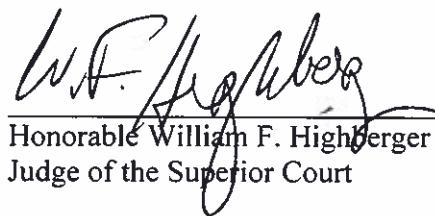 W. F. Highberger
Honorable William F. Highberger
Judge of the Superior Court